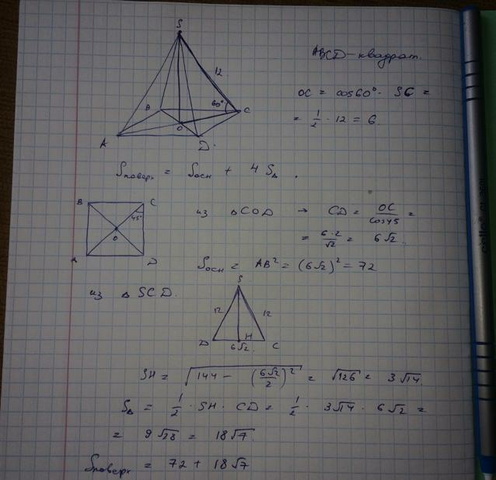 S
ABCD - квадрат.
12
OC = cos60° · SC =
60°
= 1/2 · 12 = 6
B
C
O
A
D
Sповерх = Sосн + 4 S△.
B
C
45°
O
A
D
из △COD → CD = OC/cos45 =
= 6·2/√2 = 6√2
Sосн = AB² = (6√2)² = 72
из △SCD.
S
12
12
D
H
C
6√2
SH = √(144 - (6√2/2)²) = √126 = 3√14
S△ = 1/2 · SH · CD = 1/2 · 3√14 · 6√2 =
= 9√28 = 18√7
Sповерх = 72 + 18√7